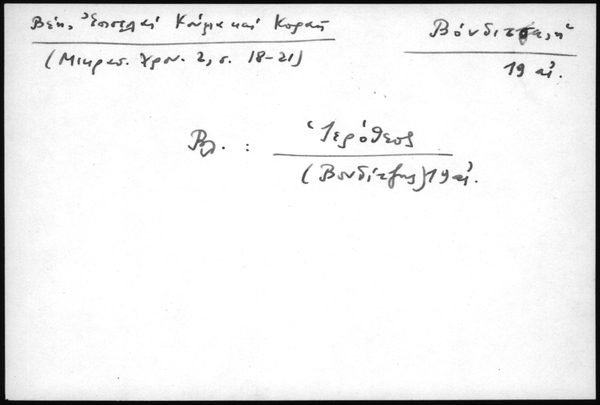 Βέη, Ἐπιστολαὶ Κούμα καὶ Κοραῆ
(Μικρασ. Χρον. 2, σ. 18-21)
Βόνδιτσα, ἡ
19 αἰ.
Βλ. : Ἱερόθεος
(Βονδίτζης) 19 αἰ.